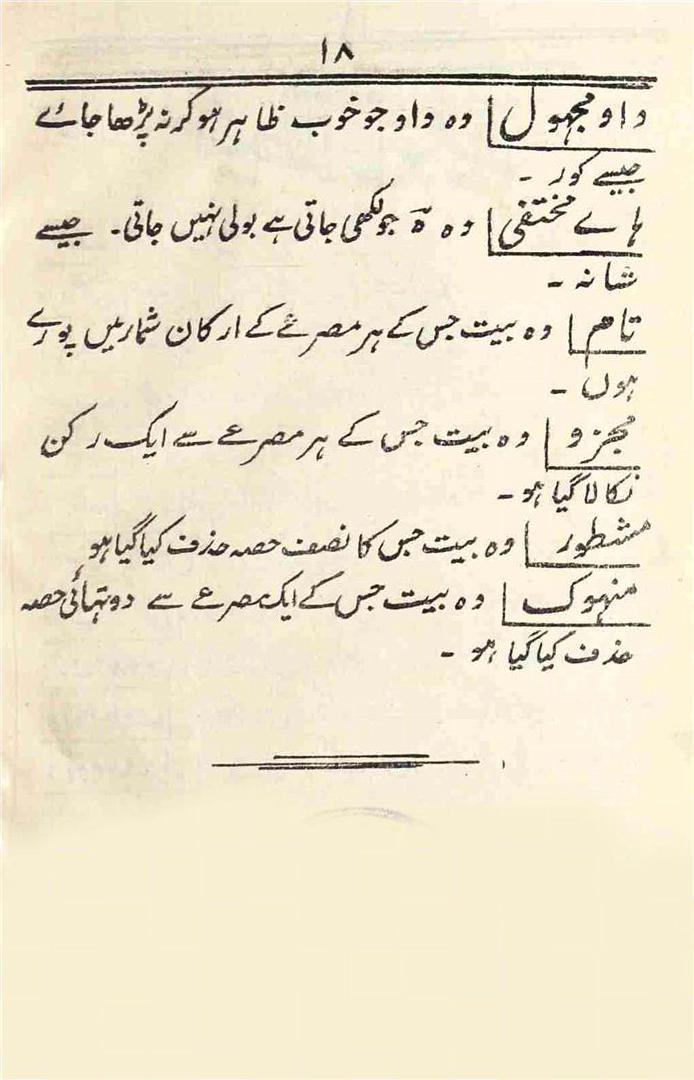 ۱۸
واو مجہول وہ واو جو خوب ظاہر ہوکر نہ پڑھا جائے
جیسے کور ۔
ہائے مختفی وہ ہ جو لکھی جاتی ہے بولی نہیں جاتی۔ جیسے
شانہ ۔
تام وہ بیت جس کے ہر مصرعے کے ارکان شمار میں پورے
ہوں ۔
مجزو وہ بیت جس کے ہر مصرعے سے ایک رکن
نکالا گیا ہو ۔
مشطور وہ بیت جس کا نصف حصہ حذف کیا گیا ہو
منہوک وہ بیت جس کے ایک مصرعے سے دو تہائی حصہ
حذف کیا گیا ہو ۔